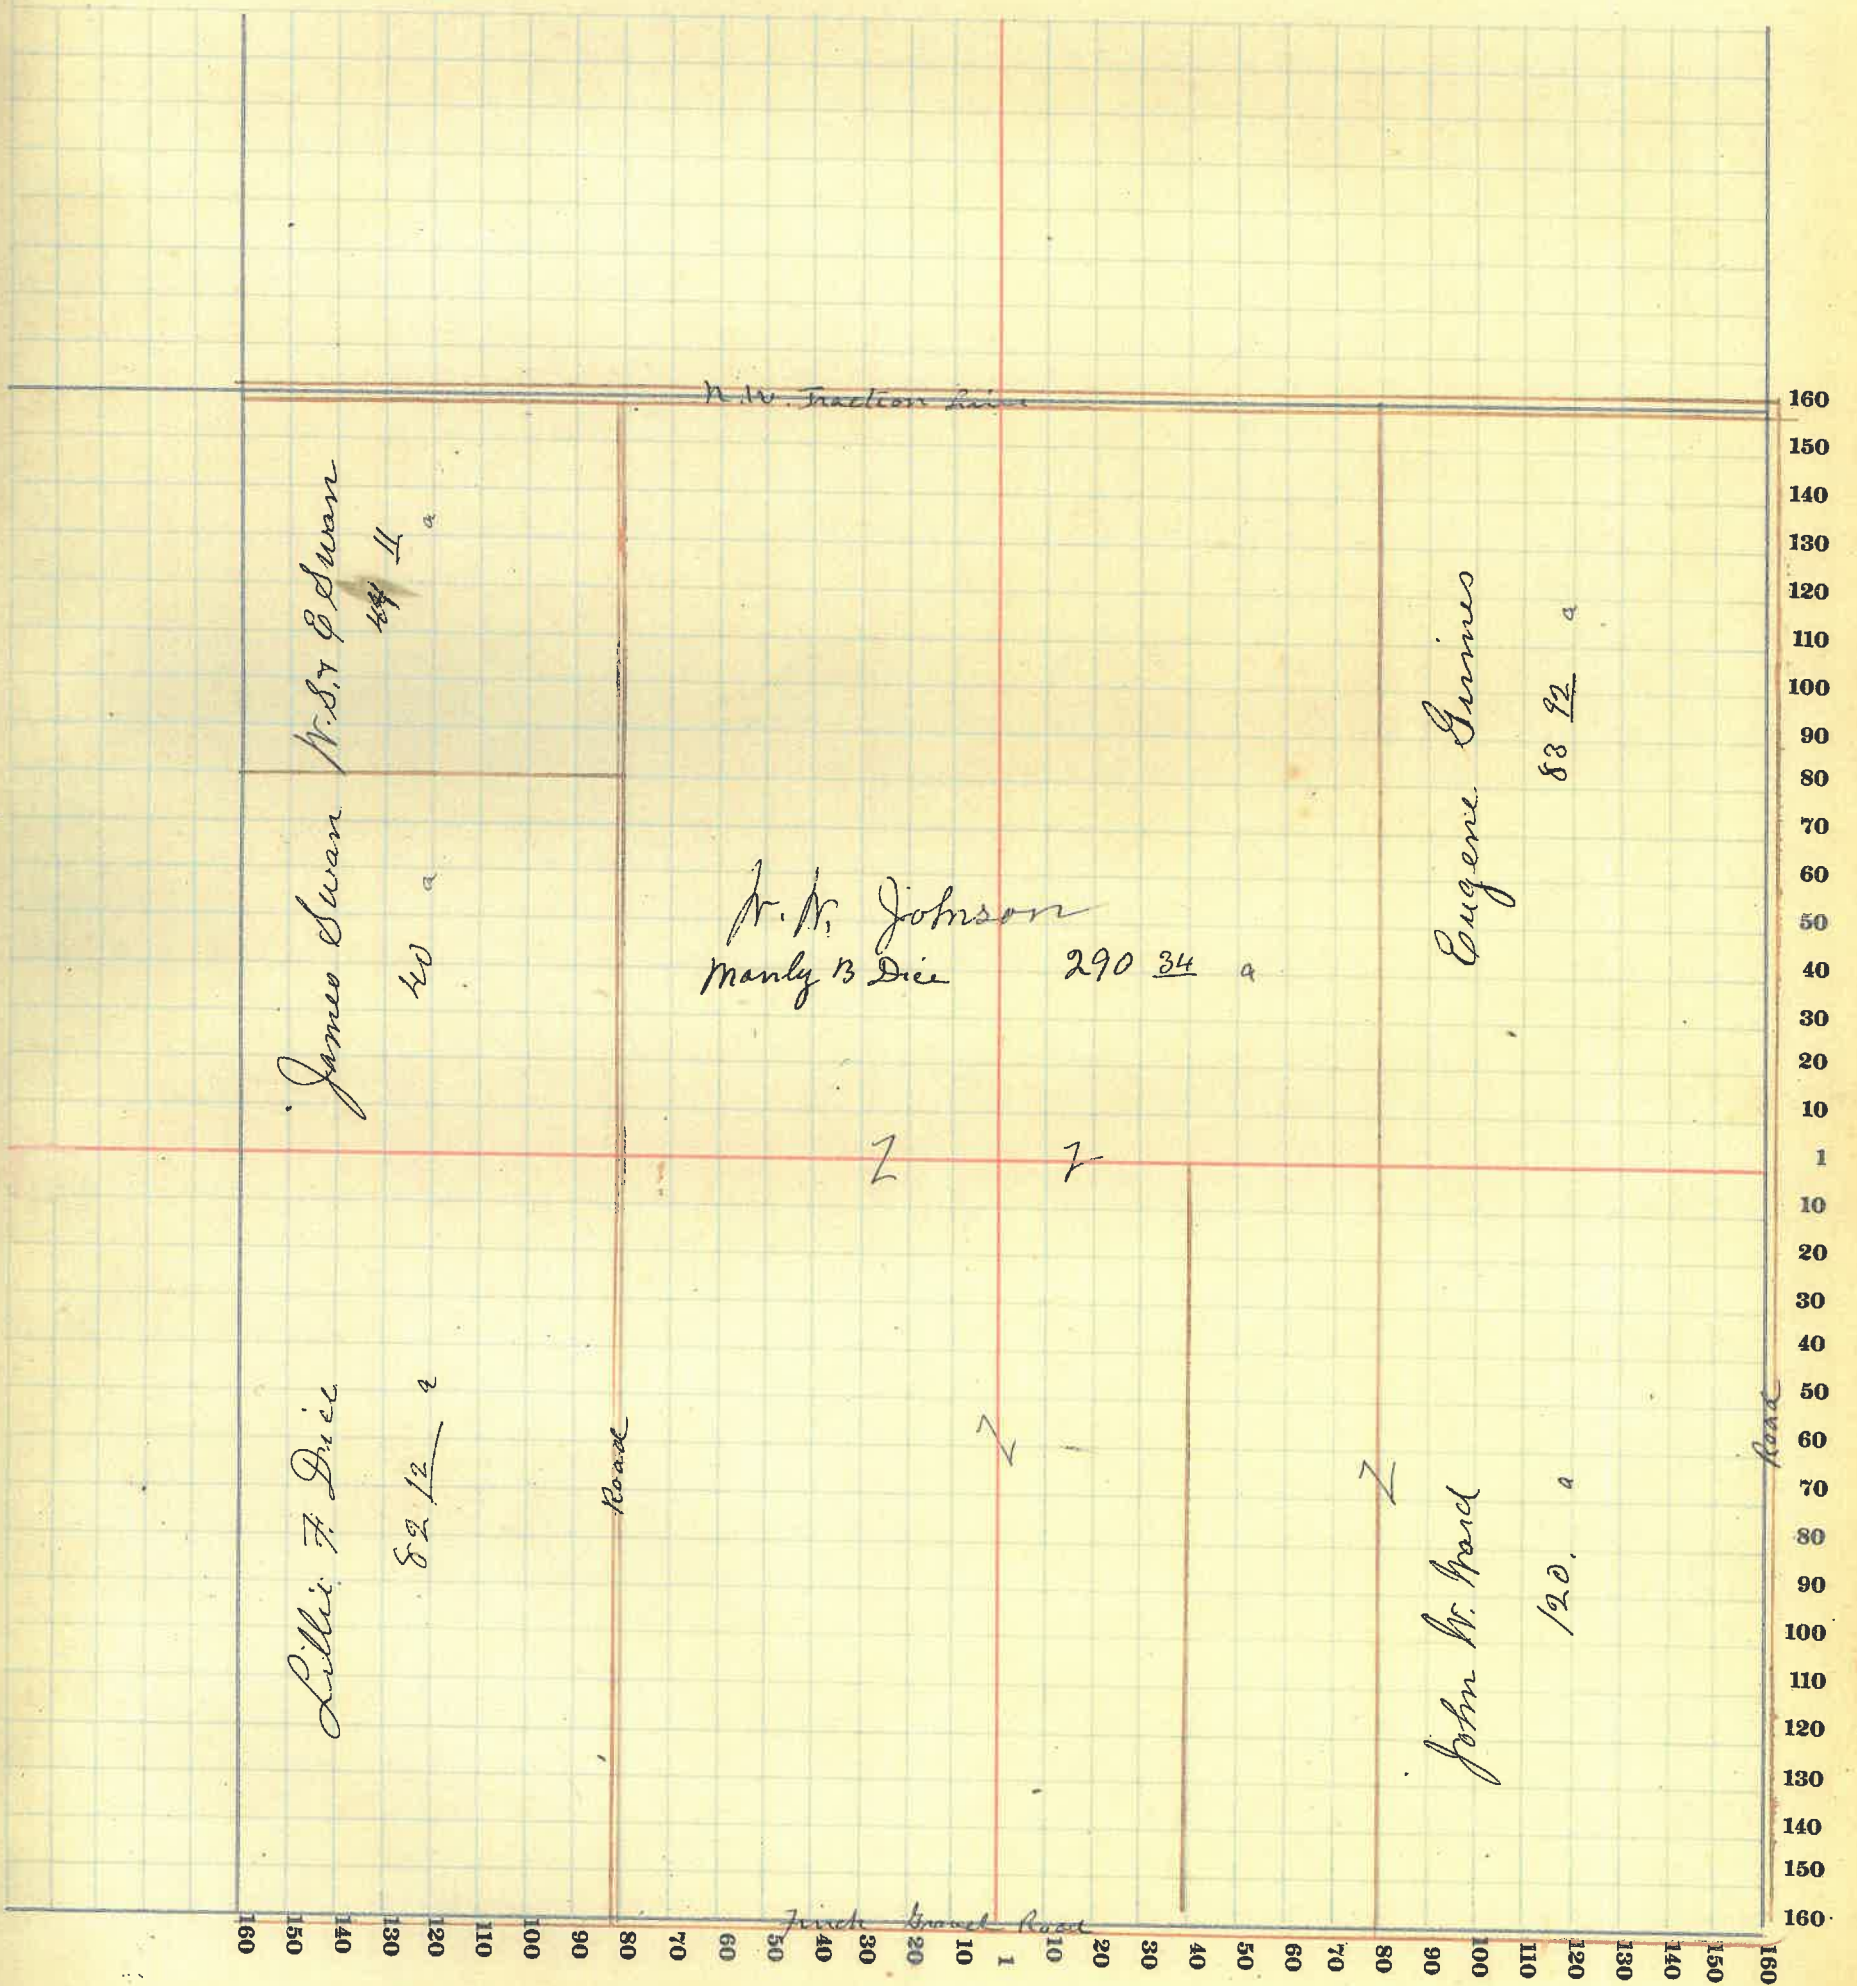 N.W. Traction Line
W.S. & E Swan
44 11 a
James Swan
40 a
W. W. Johnson
Manly B Dice 290 34 a
Eugene Grimes
83 92 a
Z Z
Lillie F. Dice
82 12 a
Road
Z
Z
John W. Ward
120. a
Road
Finch Gravel Road
160
150
140
130
120
110
100
90
80
70
60
50
40
30
20
10
1
10
20
30
40
50
60
70
80
90
100
110
120
130
140
150
160
160 150 140 130 120 110 100 90 80 70 60 50 40 30 20 10 1 10 20 30 40 50 60 70 80 90 100 110 120 130 140 150 160